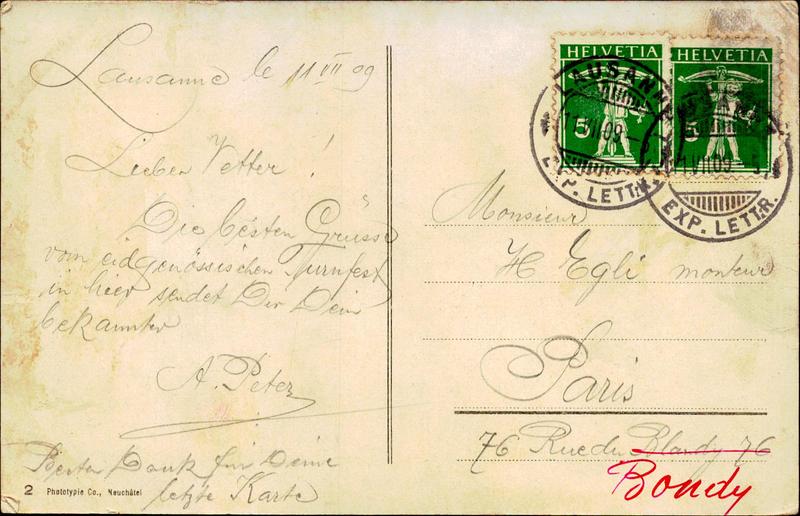 Lausanne le 11 VII 09
Lieber Vetter !
Die besten Grüsse
vom eidgenössischen Turnfest
in hier sendet Dir Dein
bekannter
A. Peter
Besten Dank für Deine
letzte Karte
2 Phototypie Co., Neuchâtel
HELVETIA
5
HELVETIA
5
LAUSANNE
11.VII.09
EXP. LETTR.
11.VII.09
EXP. LETTR.
Monsieur
H Egli monteur
Paris
76 Rue du Blandy 76
Bondy